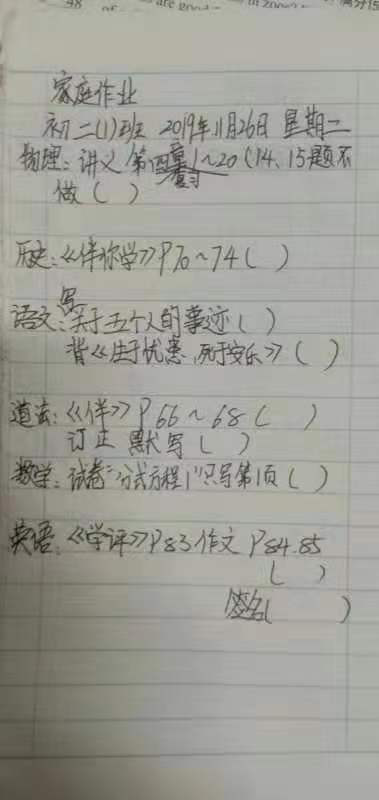 are good
家庭作业
初二(1)班 2019年11月26日 星期二
物理：讲义 第四章复习 1～20（14、15题不
做（ ）
历史：《伴你学》P70～74（ ）
语文：写关于五个人的事迹（ ）
背《生于忧患，死于安乐》（ ）
道法：《伴》P66～68（ ）
订正 默写（ ）
数学：试卷“分式方程1”只写第1页（ ）
英语：《学评》P83作文 P84.85
（ ）
签名（ ）